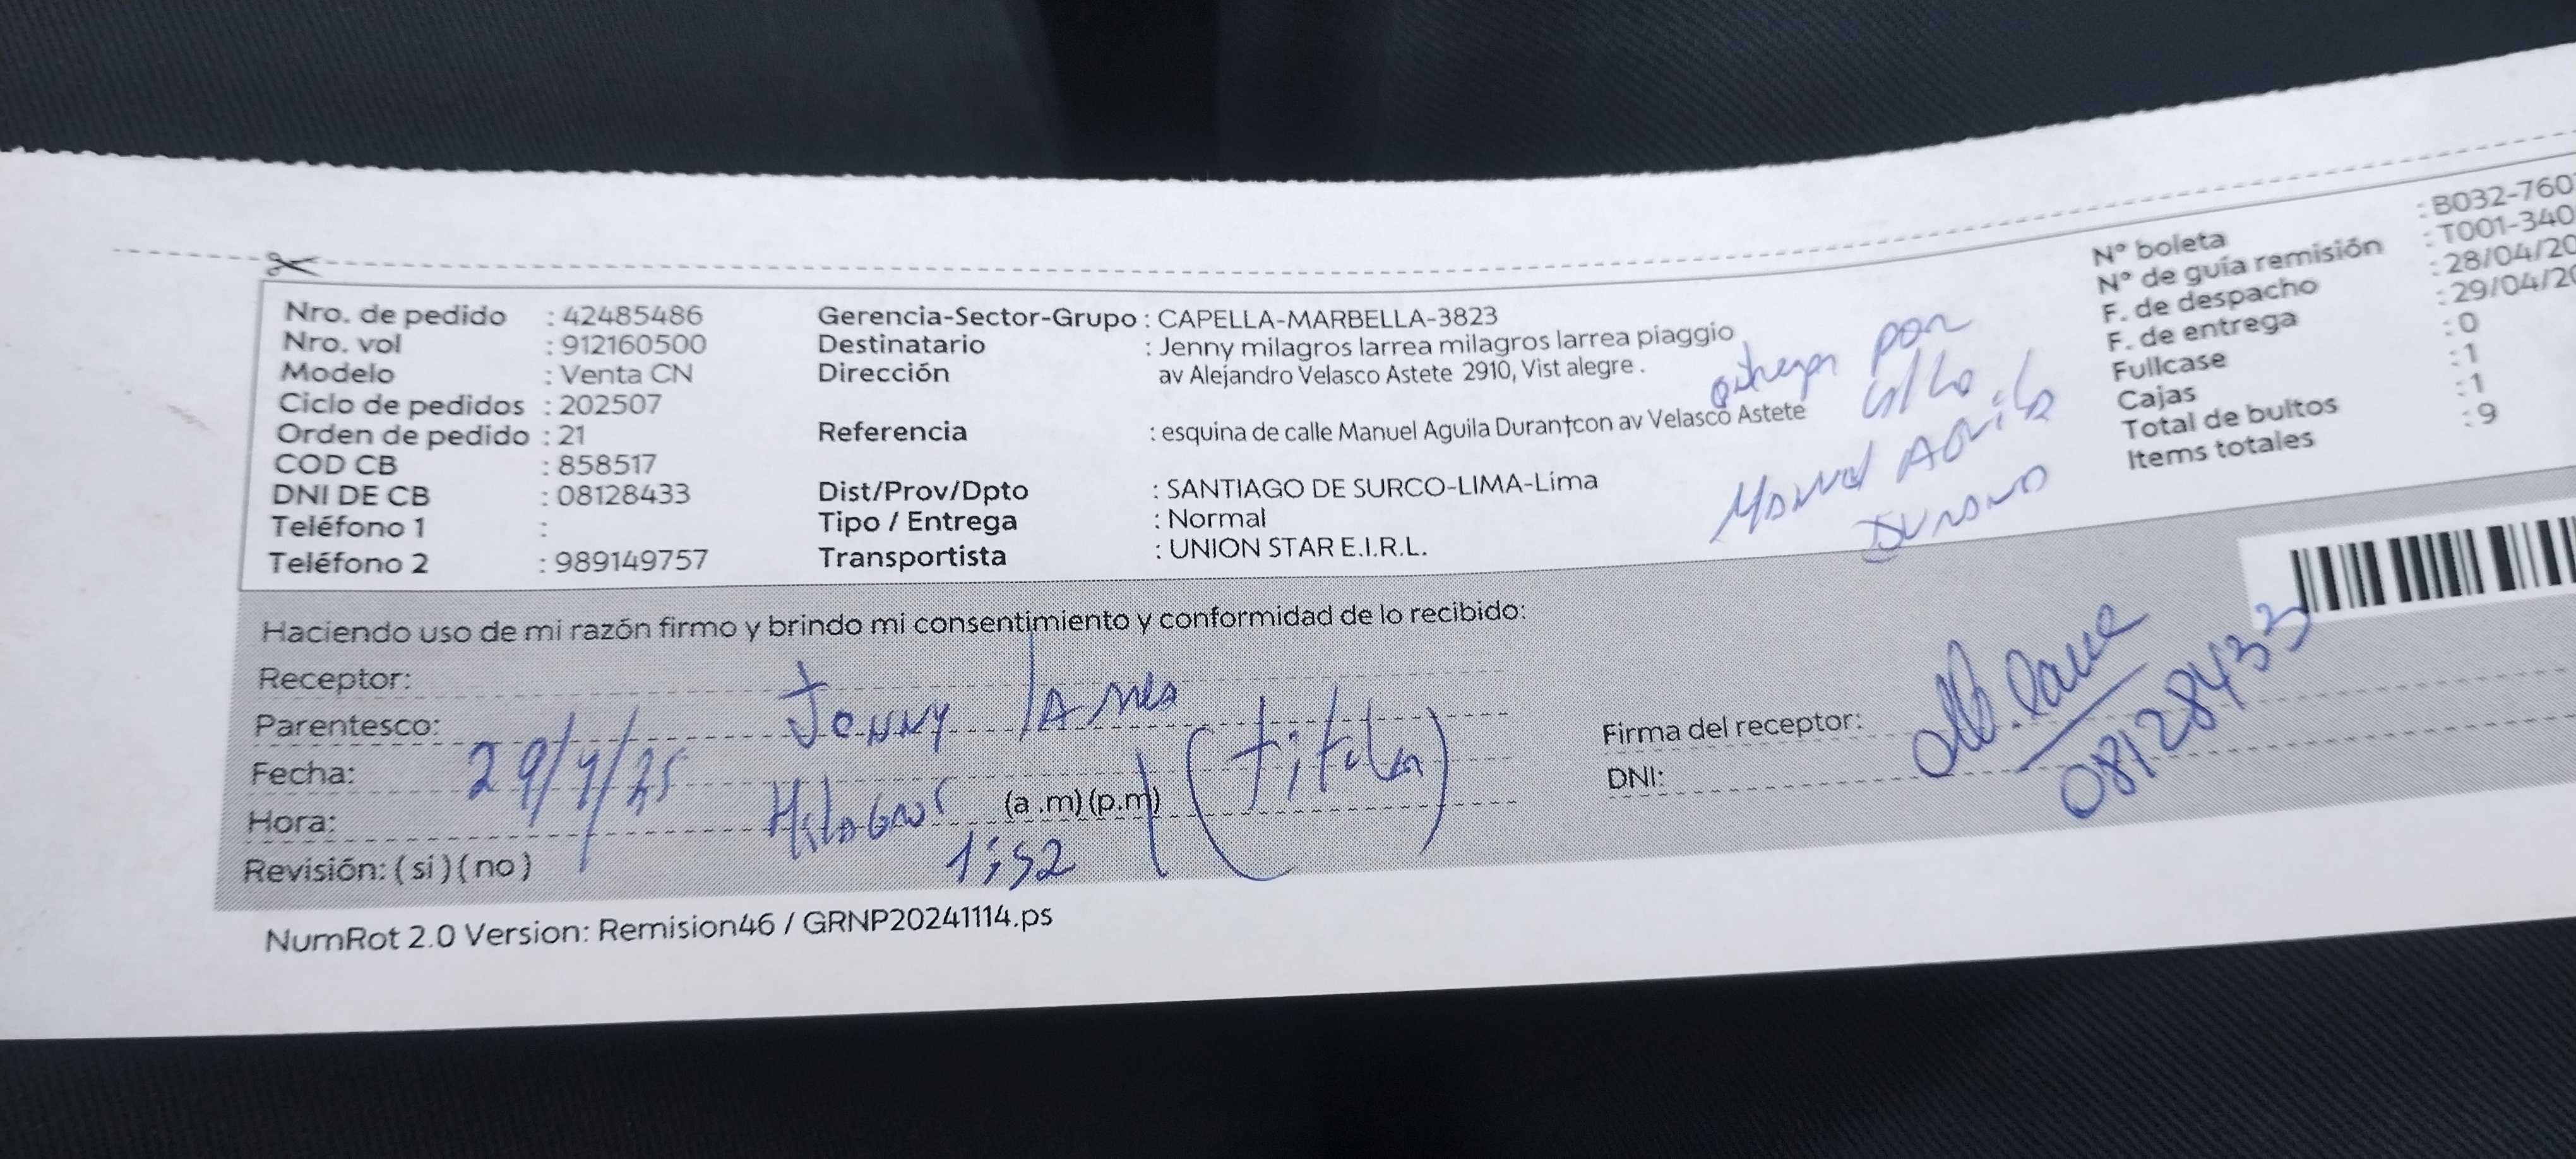 Nro. de pedido : 42485486
Nro. vol : 912160500
Modelo : Venta CN
Ciclo de pedidos : 202507
Orden de pedido : 21
COD CB : 858517
DNI DE CB : 08128433
Teléfono 1 :
Teléfono 2 : 989149757
Gerencia-Sector-Grupo : CAPELLA-MARBELLA-3823
Destinatario : Jenny milagros larrea milagros larrea piaggio
Dirección av Alejandro Velasco Astete 2910, Vist alegre .
Referencia : esquina de calle Manuel Aguila Durantcon av Velasco Astete
Dist/Prov/Dpto : SANTIAGO DE SURCO-LIMA-Lima
Tipo / Entrega : Normal
Transportista : UNION STAR E.I.R.L.
por
Manuel Aguila
Nº boleta : B032-760
Nº de guía remisión : T001-340
F. de despacho : 28/04/20
F. de entrega : 29/04/20
Fullcase : 0
Cajas : 1
Total de bultos : 1
Items totales : 9
Haciendo uso de mi razón firmo y brindo mi consentimiento y conformidad de lo recibido:
Receptor:
Jenny
Parentesco:
Fecha: 29/4/25
(titular)
Hora: Milagros (a .m) (p.m)
1:52
Revisión: ( si ) ( no )
Firma del receptor:
DNI: 08128433
NumRot 2.0 Version: Remision46 / GRNP20241114.ps